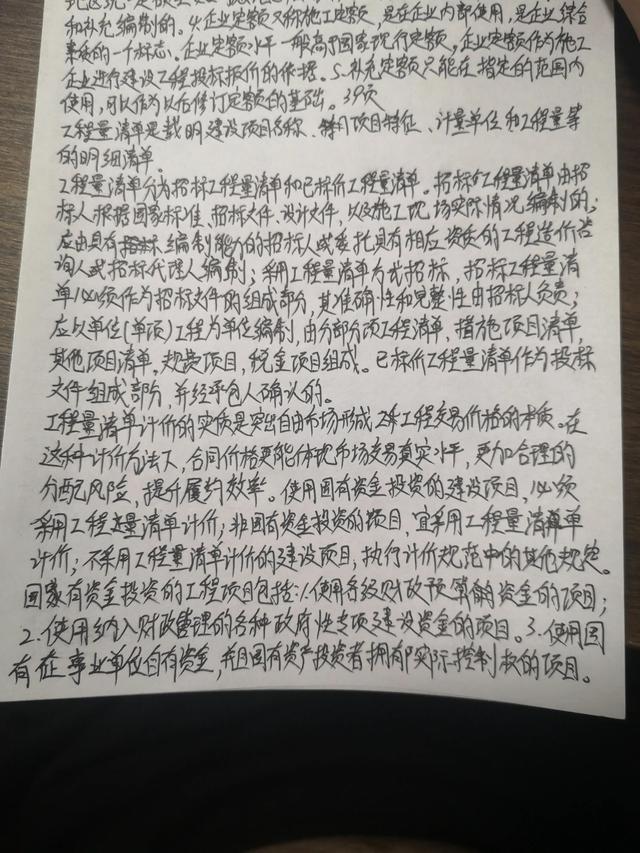 和补充编制的。4.企业定额又称施工定额，是在企业内部使用，是企业综合
素质的一个标志。企业定额水平一般高于国家现行定额，企业定额作为施工
企业进行建设工程投标报价的依据。5.补充定额只能在指定的范围内
使用，可以作为以后修订定额的基础。39页
工程量清单是载明建设项目名称、项目特征、计量单位和工程量等
的明细清单。
工程量清单分为招标工程量清单和已标价工程量清单。招标工程量清单由招
标人根据国家标准、招标文件、设计文件，以及施工现场实际情况编制的；
应由具有编制能力的招标人或委托具有相应资质的工程造价咨
询人或招标代理人编制；采用工程量清单方式招标，招标工程量清
单必须作为招标文件的组成部分，其准确性和完整性由招标人负责；
应以单位(单项)工程为单位编制，由分部分项工程清单，措施项目清单，
其他项目清单，规费项目，税金项目组成。已标价工程量清单作为投标
文件组成部分，并经承包人确认的。
工程量清单计价的实质是突出自由市场形成工程交易价格的本质。在
这种计价方法下，合同价格更能体现市场交易真实水平，更加合理的
分配风险，提升履约效率。使用国有资金投资的建设项目，必须
采用工程量清单计价；非国有资金投资的项目，宜采用工程量清单
计价；不采用工程量清单计价的建设项目，执行计价规范中的其他规定。
国家有资金投资的工程项目包括：1.使用各级财政预算的资金的项目；
2.使用纳入财政管理的各种政府性专项建设资金的项目。3.使用国
有企事业单位自有资金，并且国有资产投资者拥有实际控制权的项目。